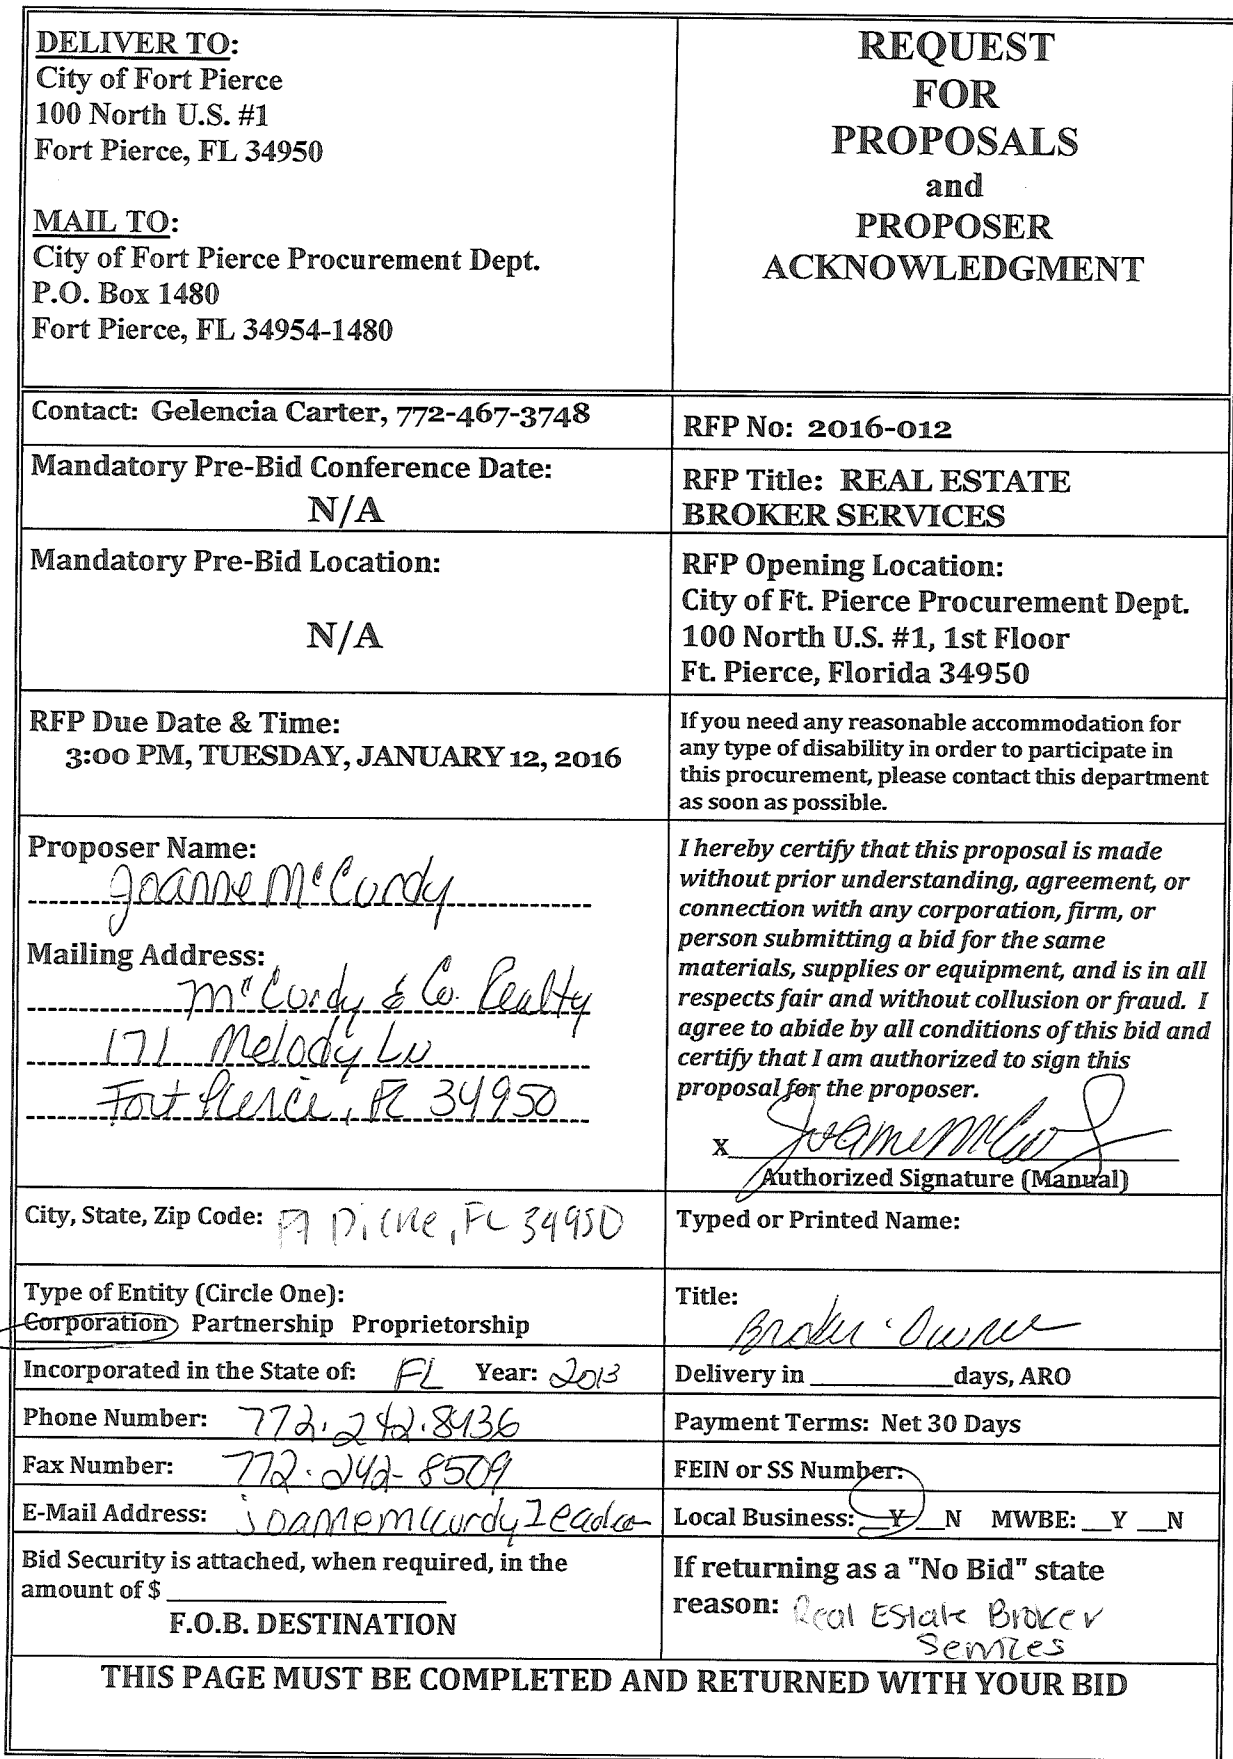 DELIVER TO:
City of Fort Pierce
100 North U.S. #1
Fort Pierce, FL 34950
MAIL TO:
City of Fort Pierce Procurement Dept.
P.O. Box 1480
Fort Pierce, FL 34954-1480
REQUEST
FOR
PROPOSALS
and
PROPOSER
ACKNOWLEDGMENT
Contact: Gelencia Carter, 772-467-3748
RFP No: 2016-012
Mandatory Pre-Bid Conference Date:
N/A
RFP Title: REAL ESTATE
BROKER SERVICES
Mandatory Pre-Bid Location:
N/A
RFP Opening Location:
City of Ft. Pierce Procurement Dept.
100 North U.S. #1, 1st Floor
Ft. Pierce, Florida 34950
RFP Due Date & Time:
3:00 PM, TUESDAY, JANUARY 12, 2016
If you need any reasonable accommodation for
any type of disability in order to participate in
this procurement, please contact this department
as soon as possible.
Proposer Name:
Joanne McCurdy
Mailing Address:
McCurdy & Co. Realty
171 Melody Ln
Fort Pierce, FL 34950
I hereby certify that this proposal is made
without prior understanding, agreement, or
connection with any corporation, firm, or
person submitting a bid for the same
materials, supplies or equipment, and is in all
respects fair and without collusion or fraud. I
agree to abide by all conditions of this bid and
certify that I am authorized to sign this
proposal for the proposer.
X Joanne McCurdy
Authorized Signature (Manual)
City, State, Zip Code: Ft Pierce, FL 34950
Typed or Printed Name:
Type of Entity (Circle One):
Corporation Partnership Proprietorship
Title:
Broker Owner
Incorporated in the State of: FL Year: 2013
Delivery in ____________ days, ARO
Phone Number: 772.242.8436
Payment Terms: Net 30 Days
Fax Number: 772.242-8509
FEIN or SS Number:
E-Mail Address:
Local Business: __Y __N MWBE: __Y __N
Bid Security is attached, when required, in the
amount of $ ____________
F.O.B. DESTINATION
If returning as a "No Bid" state
reason: Real Estate Broker
Services
THIS PAGE MUST BE COMPLETED AND RETURNED WITH YOUR BID